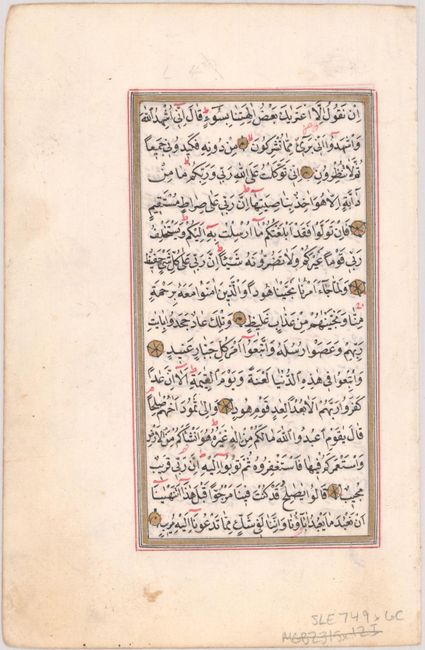 ان نقول الا اعتريك بعض الهتنا بسوء قال اني اشهد الله
واشهدوا اني بريء مما تشركون من دونه فكيدوني جميعا
ثم لا تنظرون اني توكلت على الله ربي وربكم ما من
دابة الا هو اخذ بناصيتها ان ربي على صراط مستقيم
فان تولوا فقد ابلغتكم ما ارسلت به اليكم ويستخلف
ربي قوما غيركم ولا تضرونه شيئا ان ربي على كل شيء حفيظ
ولما جاء امرنا نجينا هودا والذين امنوا معه برحمة
منا ونجيناهم من عذاب غليظ وتلك عاد جحدوا بايات
ربهم وعصوا رسله واتبعوا امر كل جبار عنيد
واتبعوا في هذه الدنيا لعنة ويوم القيمة الا ان عادا
كفروا ربهم الا بعدا لعاد قوم هود والى ثمود اخاهم صلحا
قال يقوم اعبدوا الله مالكم من اله غيره هو انشاكم من الارض
واستعمركم فيها فاستغفروه ثم توبوا اليه ان ربي قريب
مجيب قالوا يصلح قد كنت فينا مرجوا قبل هذا اتنهينا
ان نعبد ما يعبد اباؤنا واننا لفي شك مما تدعونا اليه مريب
SLE 749 x 6C